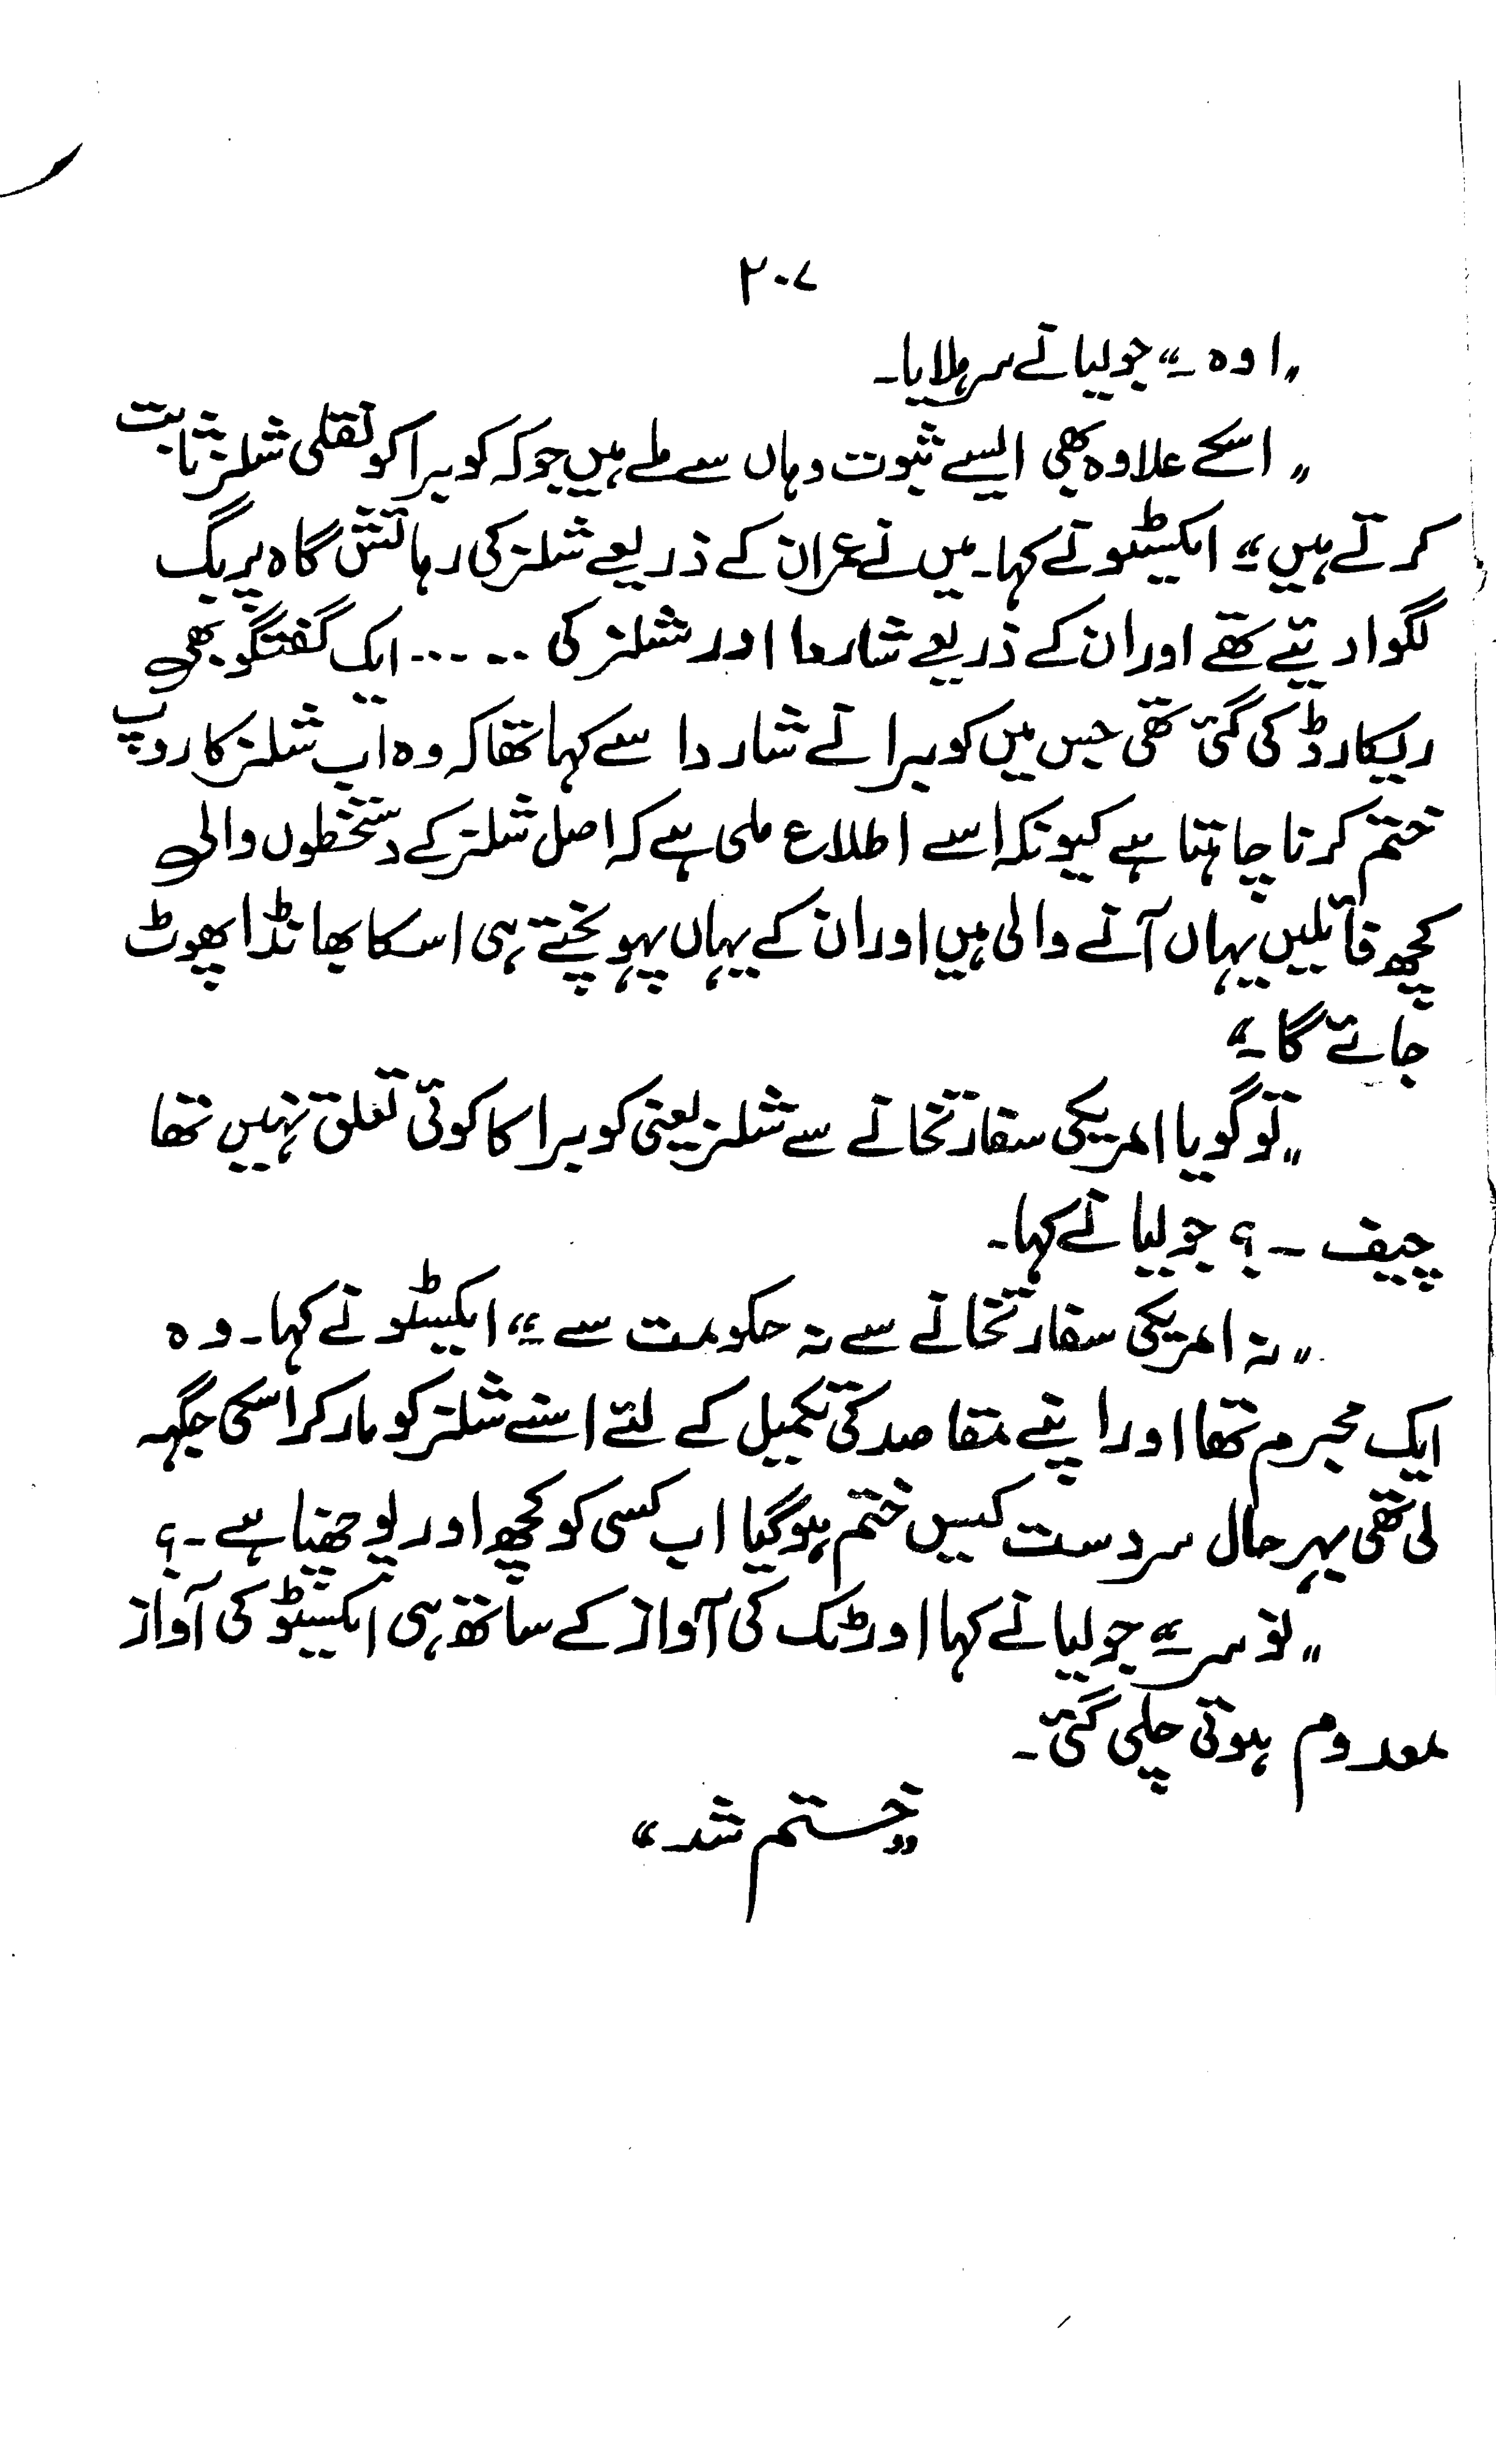 ۲۰۷
"اوہ۔" جولیا نے سر ہلایا۔
"اسکے علاوہ بھی ایسے ثبوت وہاں سے ملے ہیں جو کہ کوبرا کو نقلی شلز ثابت
کرتے ہیں۔" ایکسٹو نے کہا۔ میں نے عمران کے ذریعے شلز کی رہائش گاہ پر بگ
لگوا دیئے تھے اور ان کے ذریعے شاردا اور شلز کی ...... ایک گفتگو بھی
ریکارڈ کی گئی تھی جس میں کوبرا نے شاردا سے کہا تھا کہ وہ اب شلز کا روپ
ختم کرنا چاہتا ہے کیونکہ اسے اطلاع ملی ہے کہ اصل شلز کے دستخطوں والی
کچھ فائلیں یہاں آنے والی ہیں اور ان کے یہاں پہونچتے ہی اسکا بھانڈا پھوٹ
جائے گا۔"
"تو گویا امریکی سفارتخانے سے شلز یعنی کوبرا کا کوئی تعلق نہیں تھا
چیف ۔؟ جولیا نے کہا۔
"نہ امریکی سفارتخانے سے نہ حکومت سے۔" ایکسٹو نے کہا۔ وہ
ایک مجرم تھا اور اپنے مقاصد کی تکمیل کے لئے اسنے شلز کو مار کر اسکی جگہ
لی تھی بہرحال سردست کیس ختم ہو گیا اب کسی کو کچھ اور پوچھنا ہے ۔؟
"نو سر۔" جولیا نے کہا اور ٹک کی آواز کے ساتھ ہی ایکسٹو کی آواز
معدوم ہوتی چلی گئی۔
"ختم شد"